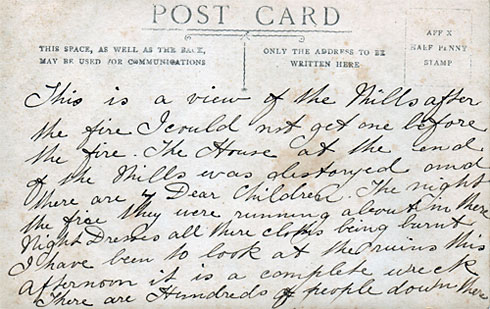 POST CARD
THIS SPACE, AS WELL AS THE BACK,
MAY BE USED FOR COMMUNICATIONS
ONLY THE ADDRESS TO BE
WRITTEN HERE
AFFIX
HALF PENNY
STAMP
This is a view of the Mills after
the fire I could not get one before
the fire. The House at the end
of the Mills was distoryed and
there are 7 Dear Children. The night
the fire they were running about in there
Night Dresses all there cloths being burnt
I have been to look at the ruins this
afternoon it is a complete wreck
There are Hundreds of people down there